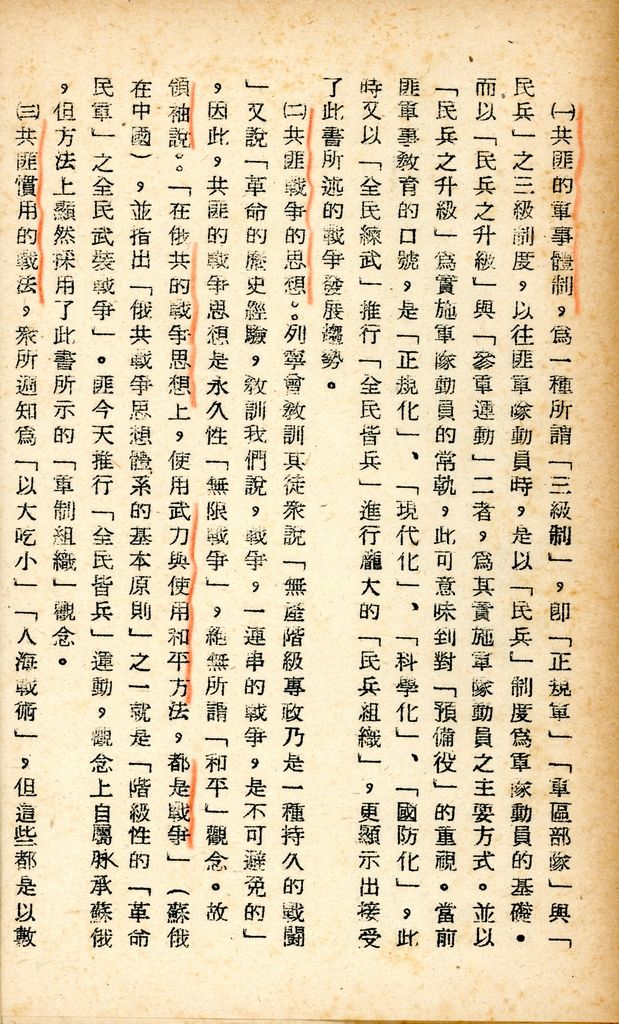 ㈠共匪的軍事體制，爲一種所謂「三級制」，卽「正規軍」「軍區部隊」與「
民兵」之三級制度，以往匪軍隊動員時，是以「民兵」制度爲軍隊動員的基礎。
而以「民兵之升級」與「參軍運動」二者，爲其實施軍隊動員之主要方式。並以
「民兵之升級」爲實施軍隊動員的常軌，此可意味到對「預備役」的重視。當前
匪軍事敎育的口號，是「正規化」、「現代化」、「科學化」、「國防化」，此
時又以「全民練武」推行「全民皆兵」進行龐大的「民兵組織」，更顯示出接受
了此書所述的戰爭發展趨勢。
㈡共匪戰爭的思想。列寧會敎訓其徒衆說「無產階級專政乃是一種持久的戰鬪
」又說「革命的歷史經驗，敎訓我們說，戰爭，一連串的戰爭，是不可避免的」
，因此，共匪的戰爭思想是永久性「無限戰爭」，絕無所謂「和平」觀念。故
領袖說。「在俄共的戰爭思想上，使用武力與使用和平方法，都是戰爭」（蘇俄
在中國），並指出「俄共戰爭思想體系的基本原則」之一就是「階級性的「革命
民軍」之全民武裝戰爭」。匪今天推行「全民皆兵」運動，觀念上自屬脉承蘇俄
，但方法上顯然採用了此書所示的「軍制組織」觀念。
㈢共匪慣用的戰法，衆所週知爲「以大吃小」「人海戰術」，但這些都是以數